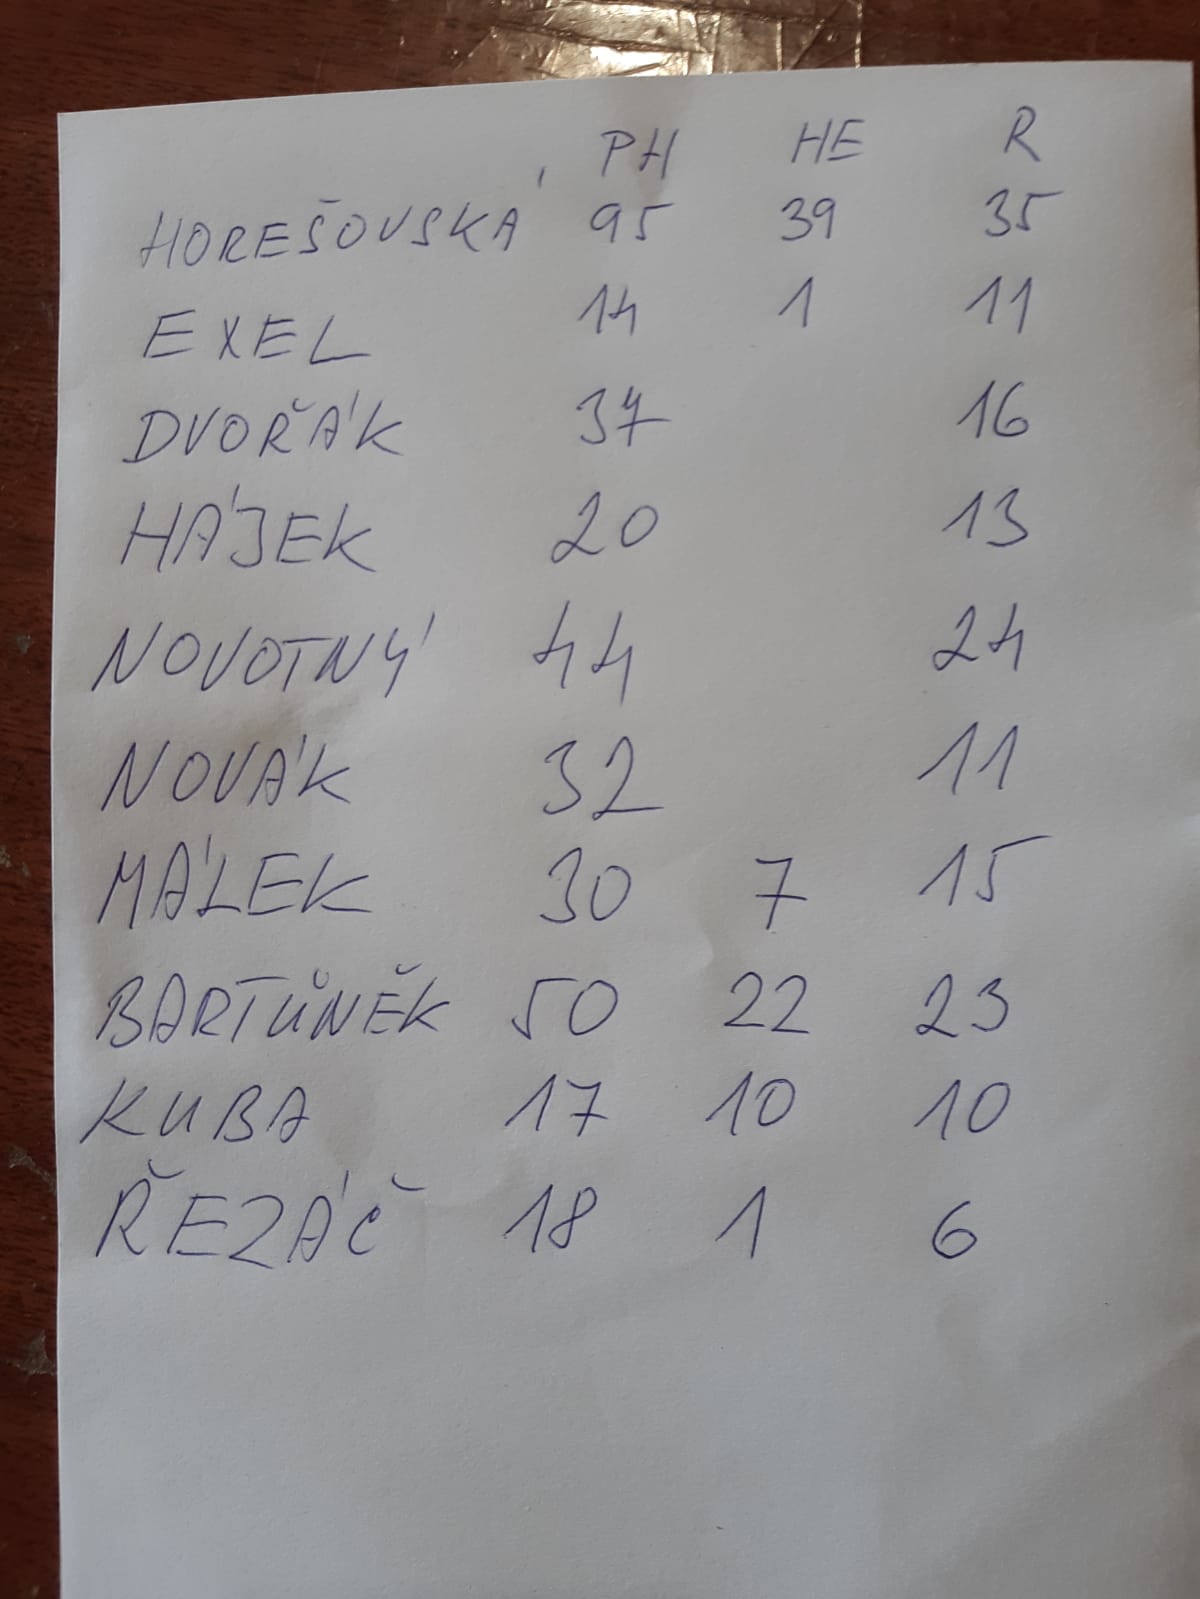 PH HE R
HOREŠOVSKÁ 95 39 35
EXEL 14 1 11
DVOŘÁK 37 16
HÁJEK 20 13
NOVOTNÝ 44 24
NOVÁK 32 11
MÁLEK 30 7 15
BARTŮNĚK 50 22 23
KUBA 17 10 10
ŘEZÁČ 18 1 6